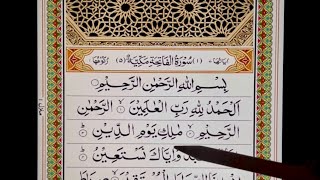 سُوْرَةُ الْفَاتِحَةِ مَكِّيَّةٌ (۵)
بِسْمِ اللّٰهِ الرَّحْمٰنِ الرَّحِيْمِ
اَلْحَمْدُ لِلّٰهِ رَبِّ الْعٰلَمِيْنَ الرَّحْمٰنِ
الرَّحِيْمِ مٰلِكِ يَوْمِ الدِّيْنِ
وَاِيَّاكَ نَسْتَعِيْنُ